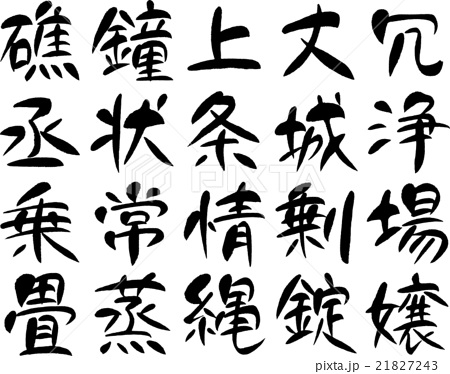 礁鐘上丈冗
丞状条城浄
乗常情剰場
畳蒸縄錠嬢
pixta.jp - 21827243